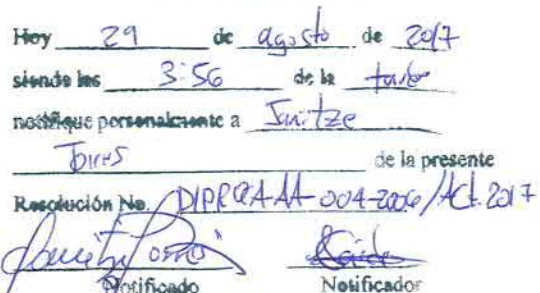 Hoy 29 de agosto de 2017
siendo las 3:56 de la tarde
notifique personalmente a Jaritze
Torres de la presente
Resolución No. DIPROCA-AA-004-2006/Act. 2017
Notificado Notificador